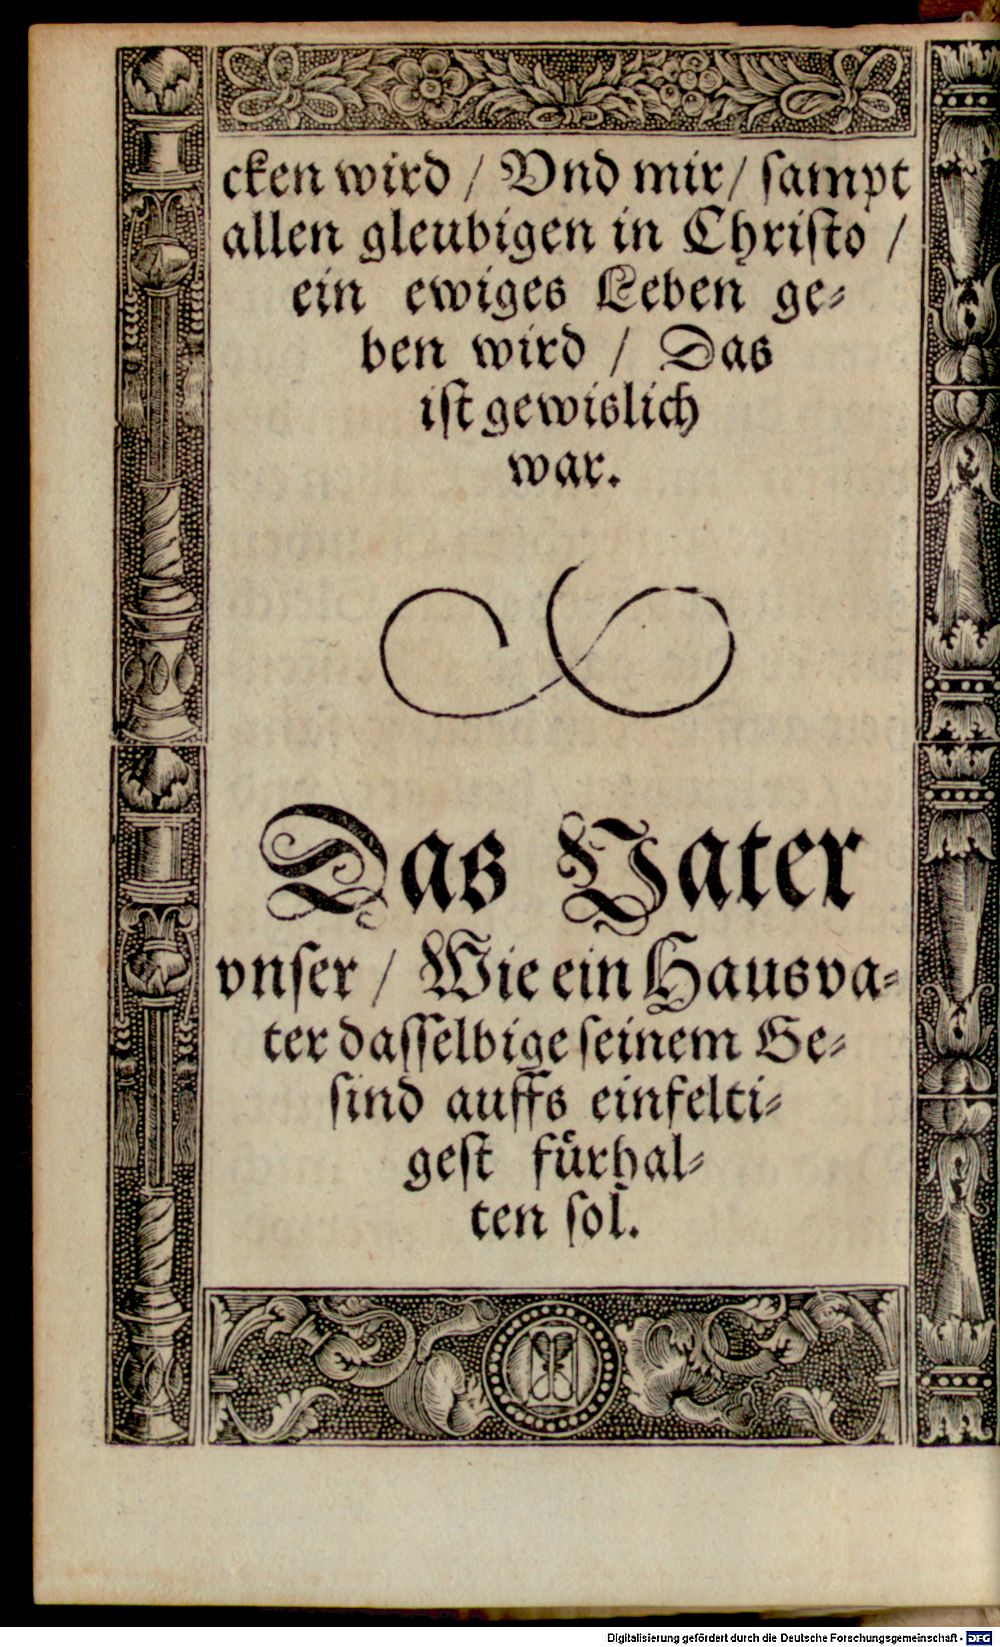 cken wird / Vnd mir / ſampt
allen gleubigen in Chriſto /
ein ewiges Leben ge⸗
ben wird / Das
iſt gewislich
war.
Das Vater
vnſer / Wie ein Hausva⸗
ter daſſelbige ſeinem Ge⸗
ſind auffs einfelti⸗
geſt fuͤrhal⸗
ten ſol.
Digitalisierung gefördert durch die Deutsche Forschungsgemeinschaft - DFG